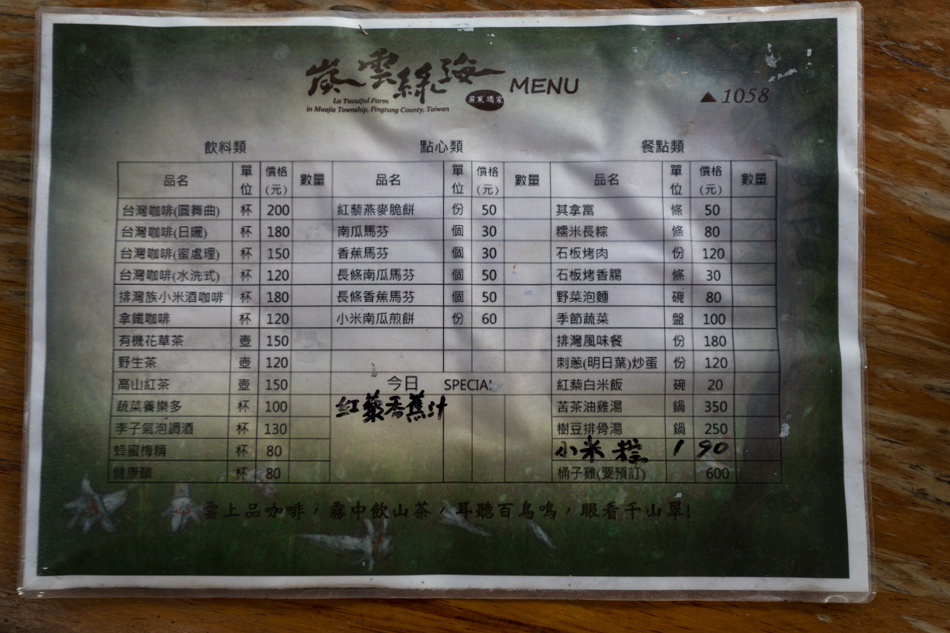 嵐雲絲海 MENU
屏東瑪家
La Yuoutful Farm
in Maajia Township, Pingtung County, Taiwan
▲1058
飲料類 點心類 餐點類
品名 單位 價格(元) 數量 品名 單位 價格(元) 數量 品名 單位 價格(元) 數量
台灣咖啡(圓舞曲) 杯 200 紅藜燕麥脆餅 份 50 其拿富 條 50
台灣咖啡(日曬) 杯 180 南瓜馬芬 個 30 糯米長粽 條 80
台灣咖啡(蜜處理) 杯 150 香蕉馬芬 個 30 石板烤肉 份 120
台灣咖啡(水洗式) 杯 120 長條南瓜馬芬 個 50 石板烤香腸 條 30
排灣族小米酒咖啡 杯 180 長條香蕉馬芬 個 50 野菜泡麵 碗 80
拿鐵咖啡 杯 120 小米南瓜煎餅 份 60 季節蔬菜 盤 100
有機花草茶 壺 150 排灣風味餐 份 180
野生茶 壺 120 刺蔥(明日葉)炒蛋 份 120
高山紅茶 壺 150 今日 SPECIAL 紅藜白米飯 碗 20
蔬菜養樂多 杯 100 紅藜香蕉汁 苦茶油雞湯 鍋 350
李子氣泡調酒 杯 130 樹豆排骨湯 鍋 250
蜂蜜梅精 杯 80 小米粽 1 90
健康醋 杯 80 桶子雞(要預訂) 600
雲上品咖啡，霧中飲山茶，耳聽百鳥鳴，眼看千山翠!